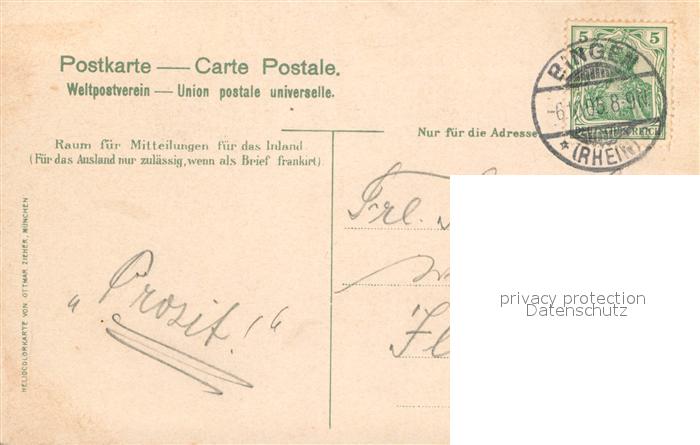 Postkarte — Carte Postale.
Weltpostverein — Union postale universelle.
Raum für Mitteilungen für das Inland.
(Für das Ausland nur zulässig, wenn als Brief frankirt).
Nur für die Adresse
5 5
DEUTSCHES REICH
BINGEN
8-9N
* (RHEIN)
Frl.
„Prosit!“
privacy protection
Datenschutz
HELIOCOLORKARTE VON OTTMAR ZIEHER, MÜNCHEN